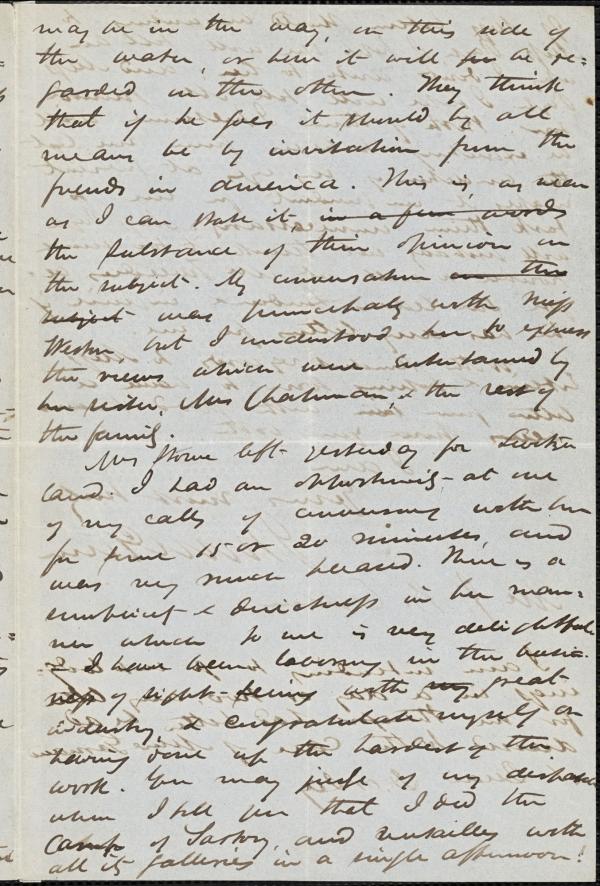 may be in the way, on this side of
the water, or how it will be re=
garded on the other. They think
that if he goes it should by all
means be by invitation from the
friends in America. This is, as near
as I can state it, in a few words
the substance of their opinion on
the subject. My conversation on the
subject was principally with Miss
Weston, but I understood her to express
the views which were entertained by
her sister, Mrs Chapman, & the rest of
the family.
Mrs Stowe left yesterday for Switzer
land. I had an opportunity at one
of my calls of conversing with her
for some 15 or 20 minutes, and
was very much pleased. There is a
simplicity & directness in her man=
ner which to me is very delightful.
I have been laboring in the busi-
ness of sight-seeing with my great
industry, & congratulate myself on
having done up the hardest of the
work. You may judge of my dispatch
when I tell you that I did the
Camp of Satory, and Versailles with
all its galleries in a single afternoon!